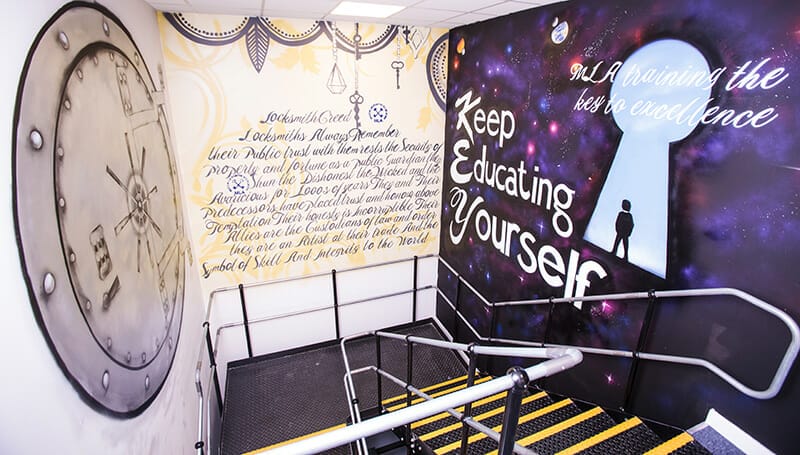 Locksmith Creed
Locksmiths Always Remember
their Public trust with them rests the Security of
property and fortune as a public Guardian the
Shun the Dishonest the Wicked and the
Avaricious for 1,000s of years They and Their
predecessors have placed trust and honour above
Temptation Their honesty is Incorruptible Their
Allies are the Custodians of law and order
they are an Artist at their trade And the
Symbol of Skill And Integrity to the World
Keep
Educating
Yourself
MLA training the
key to excellence